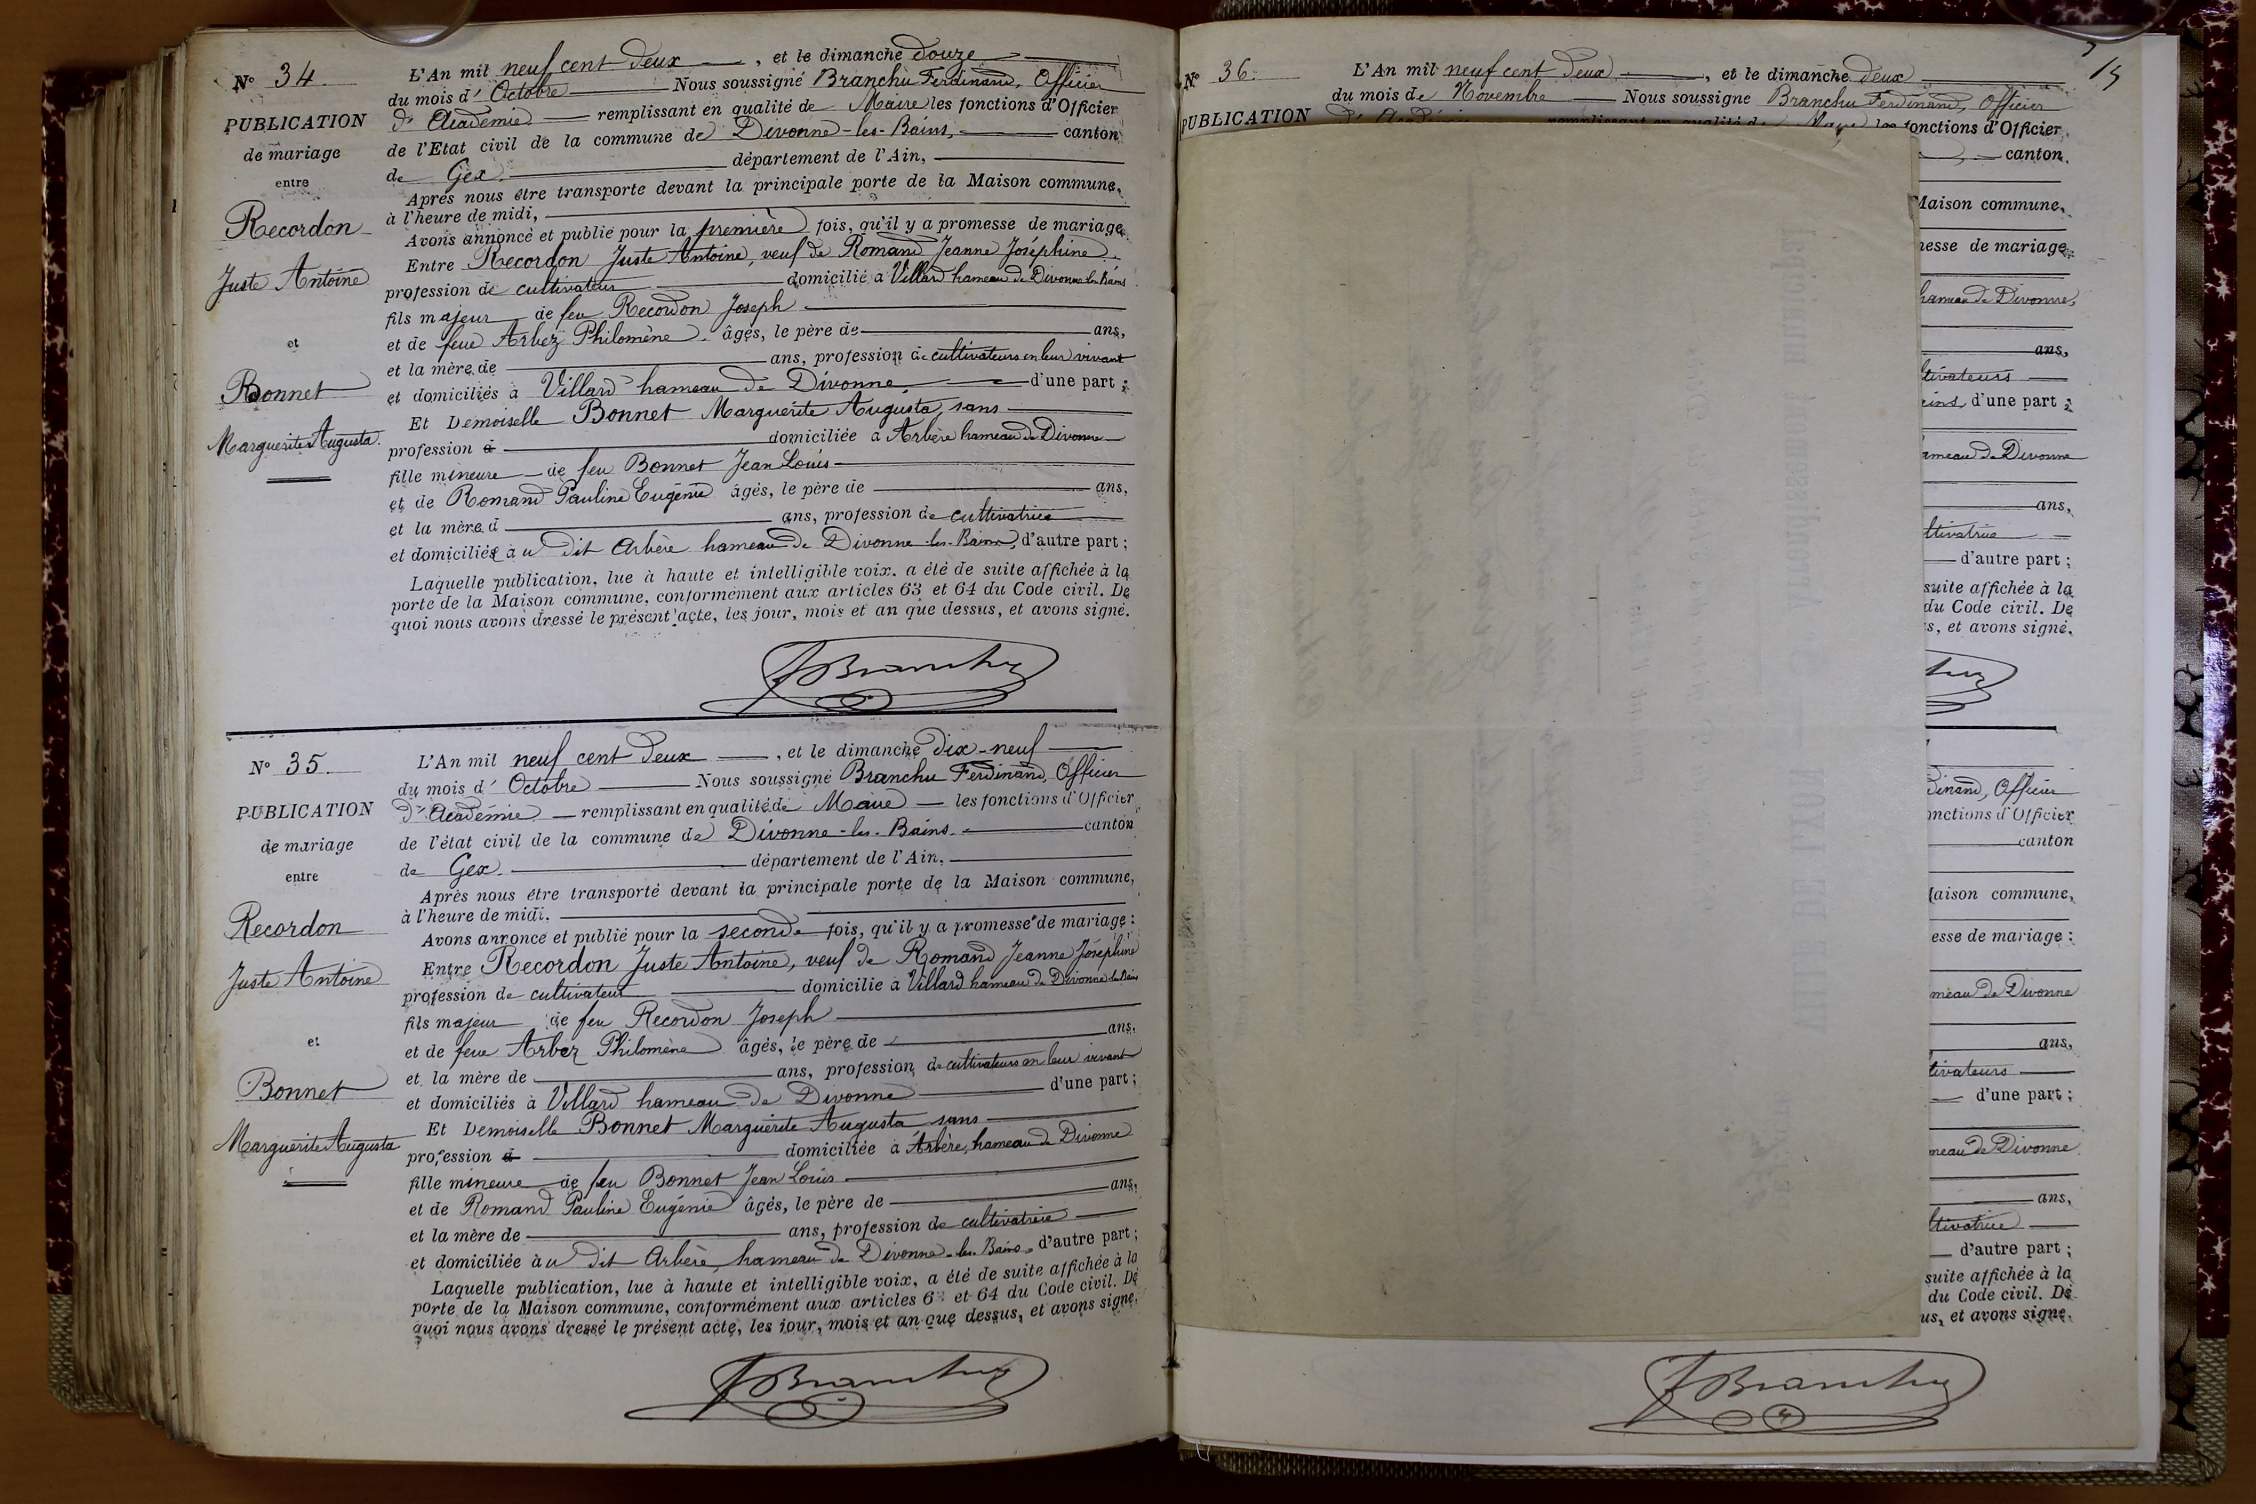 N° 34
PUBLICATION
de mariage
entre
Recordon
Juste Antoine
et
Bonnet
Marguerite Augusta.
L'An mil neuf cent deux, et le dimanche douze
du mois d' Octobre Nous soussigné Branchu Ferdinand, Officier
d'Académie remplissant en qualité de Maire les fonctions d'Officier
de l'Etat civil de la commune de Divonne-les-Bains, canton
de Gex. département de l'Ain,
Après nous être transporté devant la principale porte de la Maison commune,
à l'heure de midi,
Avons annoncé et publié pour la première fois, qu'il y a promesse de mariage
Entre Recordon Juste Antoine, veuf de Romand Jeanne Joséphine
profession de cultivateur domicilié à Villard hameau de Divonne les Bains
fils majeur de feu Recordon Joseph
et de feue Arbez Philomène. âgés, le père de ans,
et la mère de ans, profession de cultivateurs en leur vivant
et domiciliés à Villard hameau de Divonne, d'une part ;
Et Demoiselle Bonnet Marguerite Augusta, sans
profession d domiciliée à Arbère hameau de Divonne
fille mineure de feu Bonnet Jean Louis
et de Romand Pauline Eugénie âgés, le père de ans,
et la mère d ans, profession de cultivatrice
et domiciliée à u dit Arbère hameau de Divonne-les-Bains, d'autre part ;
Laquelle publication, lue à haute et intelligible voix, a été de suite affichée à la
porte de la Maison commune, conformément aux articles 63 et 64 du Code civil. De
quoi nous avons dressé le présent acte, les jour, mois et an que dessus, et avons signé.
FBranchu
N° 35.
PUBLICATION
de mariage
entre
Recordon
Juste Antoine
et
Bonnet
Marguerite Augusta
L'An mil neuf cent deux, et le dimanche dix-neuf
du mois d' Octobre Nous soussigné Branchu Ferdinand, Officier
d'Académie remplissant en qualité de Maire les fonctions d'Officier
de l'état civil de la commune de Divonne-les-Bains. canton
de Gex. département de l'Ain,
Après nous être transporté devant la principale porte de la Maison commune,
à l'heure de midi.
Avons annoncé et publié pour la seconde fois, qu'il y a promesse de mariage :
Entre Recordon Juste Antoine, veuf de Romand Jeanne Joséphine
profession de cultivateur domicilié à Villard hameau de Divonne les Bains
fils majeur de feu Recordon Joseph
et de feue Arbez Philomène âgés, le père de ans.
et la mère de ans, profession de cultivateurs en leur vivant
et domiciliés à Villard hameau de Divonne d'une part ;
Et Demoiselle Bonnet Marguerite Augusta sans
profession d domiciliée à Arbère, hameau de Divonne
fille mineure de feu Bonnet Jean Louis
et de Romand Pauline Eugénie âgés, le père de ans,
et la mère de ans, profession de cultivatrice
et domiciliée à u dit Arbère, hameau de Divonne-les-Bains, d'autre part ;
Laquelle publication, lue à haute et intelligible voix, a été de suite affichée à la
porte de la Maison commune, conformément aux articles 63 et 64 du Code civil. De
quoi nous avons dressé le présent acte, les jour, mois et an que dessus, et avons signé.
FBranchu
N° 36.
PUBLICATION
L'An mil neuf cent deux, et le dimanche deux
du mois de Novembre Nous soussigné Branchu Ferdinand, Officier
les fonctions d'Officier
canton
Maison commune,
messe de mariage
hameau de Divonne,
ans,
ltivateurs
ains, d'une part ;
ameau de Divonne
ans,
ltivatrice
d'autre part ;
suite affichée à la
du Code civil. De
s, et avons signé.
dinand, Officier
onctions d'Officier
canton
Maison commune,
esse de mariage :
meau de Divonne
ans,
tivateurs
d'une part ;
meau de Divonne
ans,
ltivatrice
d'autre part ;
suite affichée à la
du Code civil. De
us, et avons signé.
FBranchu